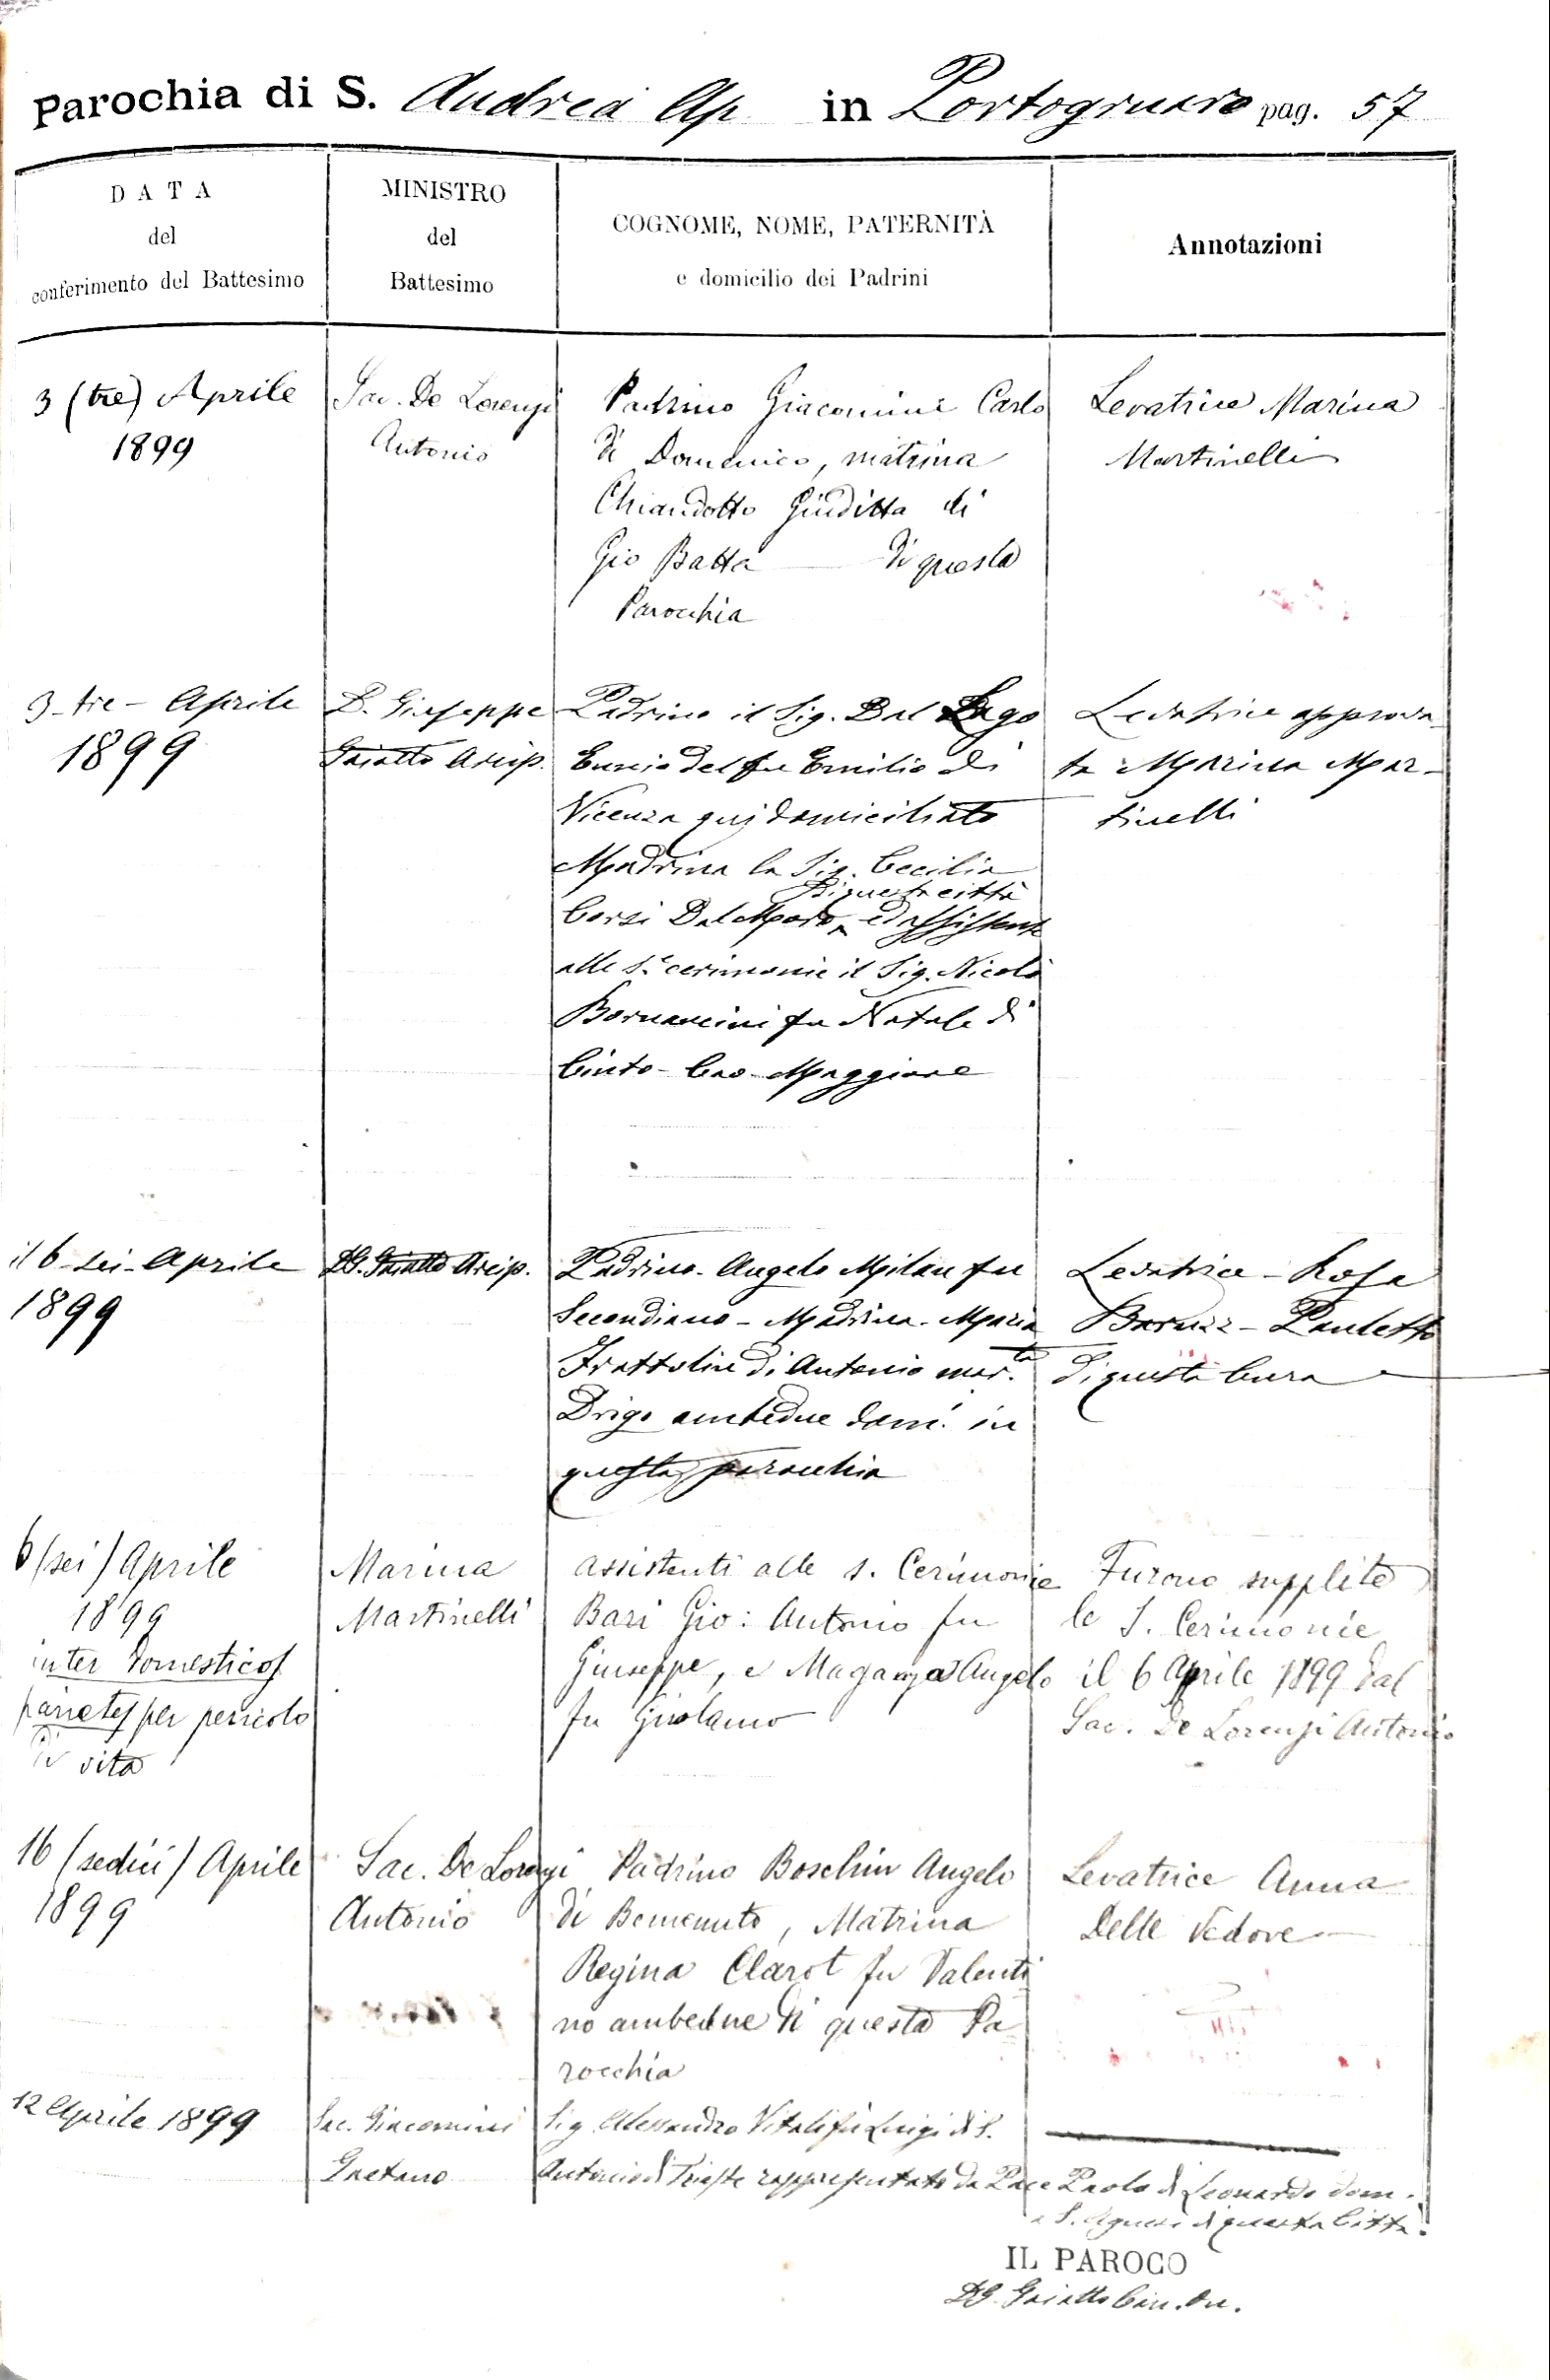 Parochia di S. Andrea Ap. in Portogruaro pag. 57
DATA
del
conferimento del Battesimo
MINISTRO
del
Battesimo
COGNOME, NOME, PATERNITÀ
e domicilio dei Padrini
Annotazioni
3 (tre) Aprile
1899
Sac. De Lorenzi
Antonio
Padrino Giacomini Carlo
di Domenico, matrina
Chiandotto Giuditta di
Gio Batta — di questa
Parocchia
Levatrice Marina
Martinelli
3 - tre - Aprile
1899
D. Giuseppe
Gaiatto Arcip.
Padrino il Sig. Dal Lago
del fu Emilio di
Vicenza qui domiciliato
Madrina la Sig. Cecilia
di questa città
Corsi Dal Moro ed assistente
alle S.e cerimonie il Sig. Nicolò
Bornancini fu Natale di
Cinto - Cao - Maggiore
Levatrice approva-
ta Marina Mar-
tinelli
il 6 - sei - Aprile
1899
D.G. Gaiatto Arcip.
Padrino - Angelo Milan fu
Secondiano - Madrina - Maria
Frattolin di Antonio mar.ta
Drigo ambedue dom. in
questa parocchia
Levatrice - Rosa
- Pauletto
di questa Cura
6 (sei) Aprile
1899
inter domesticos
parietes per pericolo
di vita
Marina
Martinelli
Assistenti alle s. Cerimonie
Bari Gio: Antonio fu
Giuseppe, e Maganza Angelo
fu Girolamo
Furono supplite
le S. Cerimonie
il 6 Aprile 1899 dal
Sac. De Lorenzi Antonio
16 (sedici) Aprile
1899
Sac. De Lorenzi
Antonio
Padrino Boschin Angelo
di Benvenuto, Matrina
Regina Clarot fu Valenti
no ambedue di questa Pa
rocchia
Levatrice Anna
Delle Vedove
12 Aprile 1899
Sac. Giacomini
Gaetano
Sig. Alessandro Vitali fu Luigi di S.
Antonio di Trieste rappresentato da Pace Paolo di Leonardo dom.
a S. Agnese di questa Città.
IL PAROCO
D.G. Gaiatto